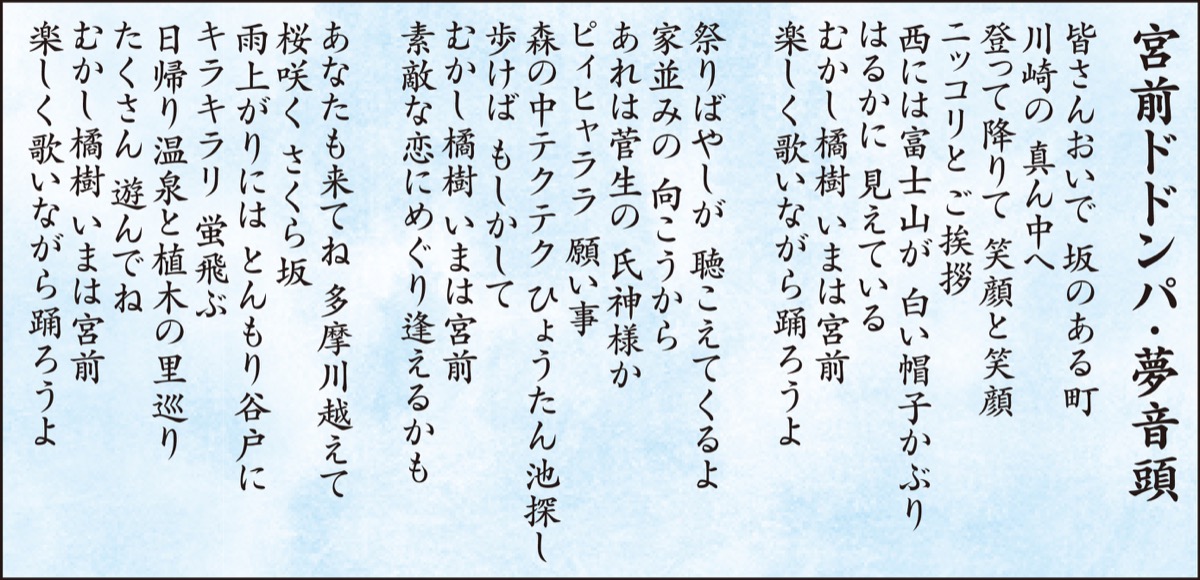 宮前ドドンパ・夢音頭
皆さんおいで 坂のある町
川崎の 真ん中へ
登って降りて 笑顔と笑顔
ニッコリと ご挨拶
西には富士山が 白い帽子かぶり
はるかに 見えている
むかし橘樹 いまは宮前
楽しく歌いながら踊ろうよ
祭りばやしが 聴こえてくるよ
家並みの 向こうから
あれは菅生の 氏神様か
ピィヒャララ 願い事
森の中テクテク ひょうたん池探し
歩けば もしかして
むかし橘樹 いまは宮前
素敵な恋にめぐり逢えるかも
あなたも来てね 多摩川越えて
桜咲く さくら坂
雨上がりには とんもり谷戸に
キラキラリ 蛍飛ぶ
日帰り温泉と植木の里巡り
たくさん 遊んでね
むかし橘樹 いまは宮前
楽しく歌いながら踊ろうよ